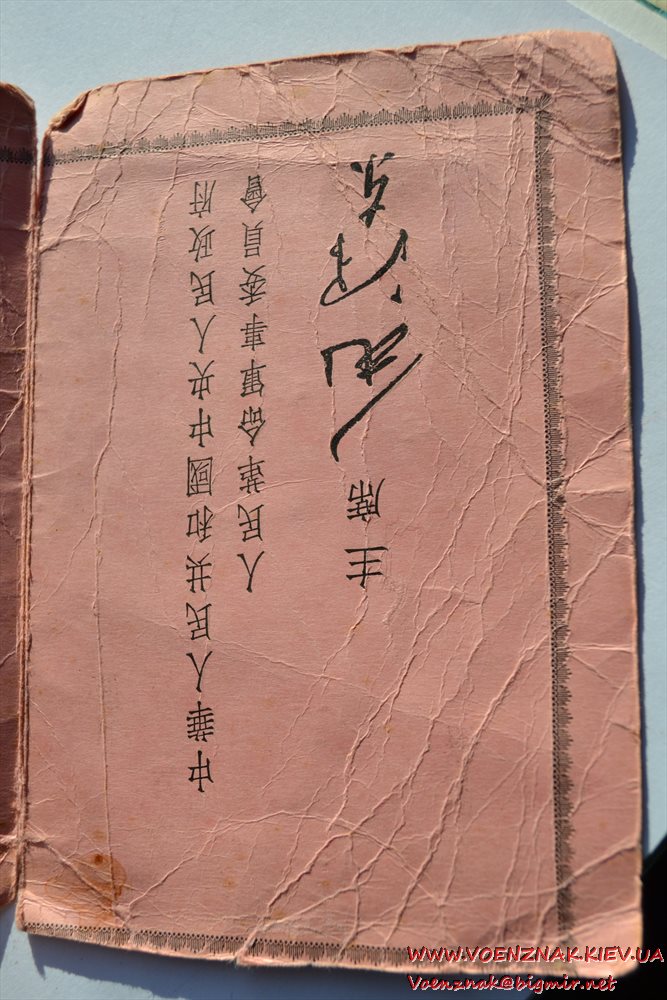 中華人民共和國中央人民政府
人民革命軍事委員會
主席 毛泽东
WWW.VOENZNAK.KIEV.UA
Voenznak@bigmir.net